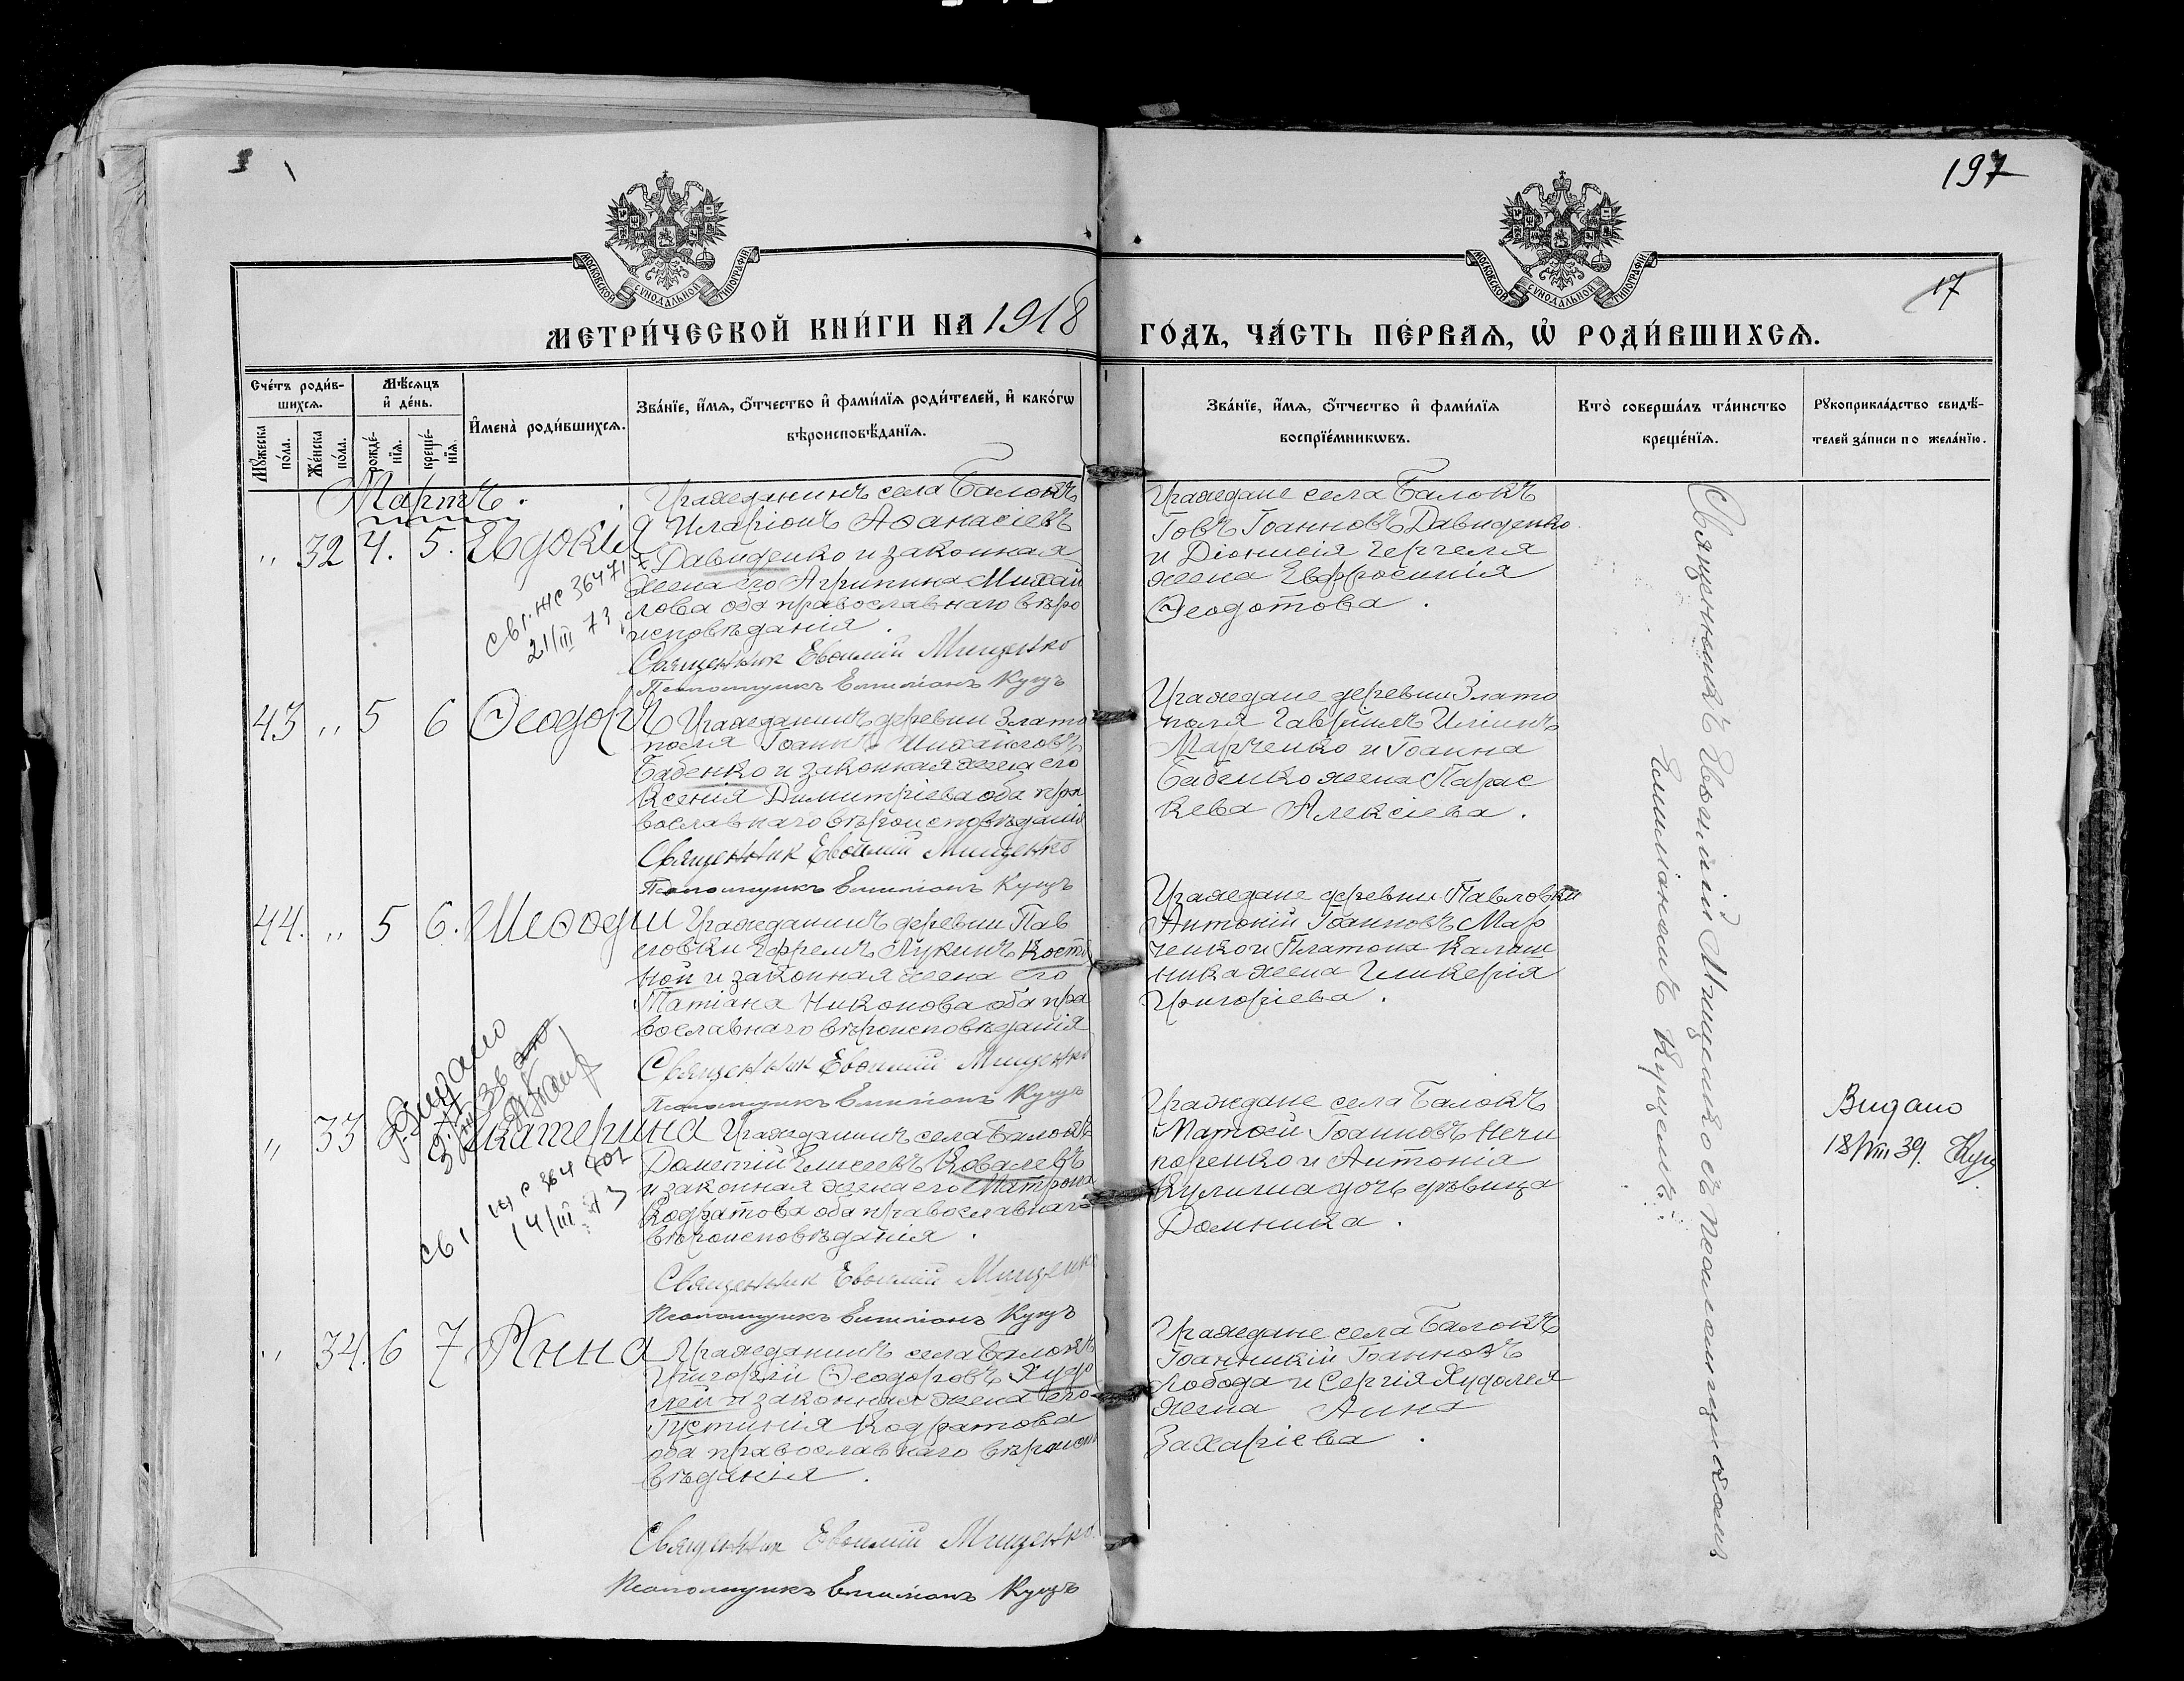 197
17
МОСКОВСКОЙ СѴНОДАЛЬНОЙ ТИПОГРАФІИ
МОСКОВСКОЙ СѴНОДАЛЬНОЙ ТИПОГРАФІИ
МЕТРИ́ЧЕСКОЙ КНИ́ГИ НА 1918 ГО́ДЪ, ЧА́СТЬ ПЕ́РВАѦ, Ѡ҆ РОДИ́ВШИХСѦ.
Сче́тъ роди́в-
шихсѧ.
Мѣ́сѧцъ
и҆ де́нь.
Мꙋ́жеска
по́ла.
Же́нска
по́ла.
рожде́-
нїѧ.
креще́-
нїѧ.
И҆мена̀ роди́вшихсѧ.
Зва́нїе, и҆́мѧ, ѻ҆́тчество и҆ фами́лїѧ роди́телей, и҆ како́гѡ
вѣроисповѣ́данїѧ.
Зва́нїе, и҆́мѧ, ѻ҆́тчество и҆ фами́лїѧ
воспрїе́мникѡвъ.
Кто̀ соверша́лъ та́инство
креще́нїѧ.
Рꙋкоприкла́дство свидѣ́-
телей за́писи по жела́нїю.
Мартъ.
,, 32 4. 5. Евдокія
Гражданинъ села Балокъ
Иларіонъ Аѳанасіевъ
Давиденко и законная
жена его Агрипина Михай
лова оба православнаго вѣро
исповѣданія.
Священник Евѳимій Мищенко
Псаломщикъ Емиліанъ Куцъ
Граждане села Балокъ
Іовъ Іоанновъ Давиденко
и Діонисія Гергеля
жена Евфросинія
Ѳеодотова.
Св1. ЖС 36471
21/III 73
43 ,, 5 6 Ѳеодоръ
Гражданинъ деревни Злато
поля Іоаннъ Михайловъ
Бабенко и законная жена его
Ксенія Димитріева оба пра
вославнаго вѣроисповѣданія
Священник Евѳимій Мищенко
Псаломщикъ Емиліанъ Куцъ
Граждане деревни Злато
поля Гавріилъ Иліинъ
Марченко и Іоанна
Бабенко жена Парас
кева Алексіева.
44. ,, 5 6. Меѳодій
Гражданинъ деревни Пав
ловки Ефремъ Лукинъ Кост
ной и законная жена его
Татіана Никонова оба пра
вославнаго вѣроисповѣданія
Священник Евѳимій Мищенко
Псаломщикъ Емиліанъ Куцъ
Граждане деревни Павловки
Антоній Іоанновъ Мар
ченко и Платона Калаш
ника жена Гликерія
Григоріева.
,, 33 Екатерина
Гражданинъ села Балокъ
Дометій Елисеевъ Ковалевъ
и законная жена его Матрона
Кодратова оба православнаго
вѣроисповѣданія.
Священник Евѳимій Мищенко
Псаломщикъ Емиліанъ Куцъ
Граждане села Балокъ
Матѳей Іоанновъ Нечи
поренко и Антонія
Кулиша дочь дѣвица
Домника.
Видано
18/VIII 39. Куц
Видано
14/III 73
,, 34. 6 7 Анна
Гражданинъ села Балокъ
Григорій Ѳеодоровъ Худо
лей и законная жена его
Іустинія Кодратова
оба православнаго вѣроиспо
вѣданія.
Священник Евѳимій Мищенко.
Псаломщикъ Емиліанъ Куцъ
Граждане села Балокъ
Іоанникій Іоанновъ
Лобода и Сергія Худолея
жена Анна
Захаріева.
Священникъ Евѳимій Мищенко съ псаломщикомъ
Емиліаномъ Куцемъ.